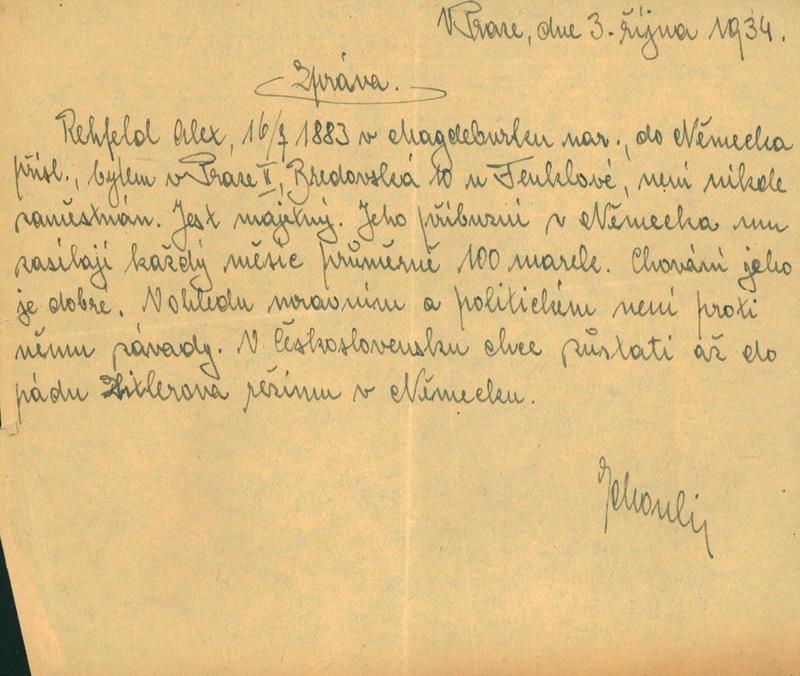 V Praze, dne 3. října 1934.
Zpráva.
Rehfeld Alex, 16/7 1883 v Magdeburku nar., do Německa
přísl., bytem v Praze II, Bredovská 10 u Fenklové, není nikde
zaměstnán. Jest májetný. Jeho příbuzní z Německa mu
zasílají každý měsíc průměrně 100 marek. Chování jeho
je dobre. V ohledu mravním a politickém není proti
němu závady. V Československu chce zůstati až do
pádu Hitlerova režimu v Německu.